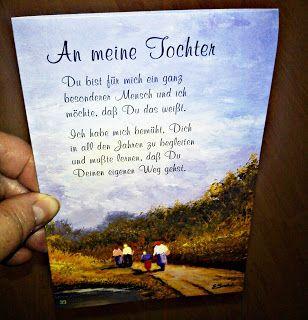 An meine Tochter
Du bist für mich ein ganz
besonderer Mensch und ich
möchte, daß Du das weißt.
Ich habe mich bemüht, Dich
in all den Jahren zu begleiten
und mußte lernen, daß Du
Deinen eigenen Weg gehst.